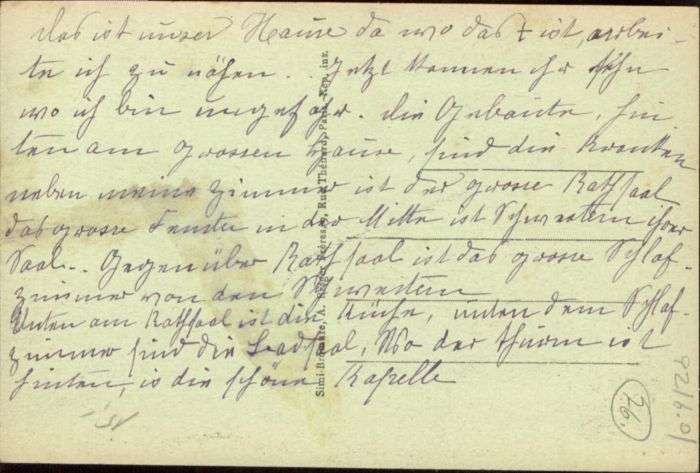 Das ist unser Hause da wo das + ist, arbei-
te ich zu nähen.. Jetzt können ihr sehn
wo ich bin ungefähr. Die Gebaute, hin
ten am grossen Hause, sind die Kranken
neben meine Zimmer ist der grosse Rathsaal
das grosse Fenster in der Mitte ist Schwestern ihrer
Saal.. Gegenüber Rathsaal ist das grosse Schlaf
zimmer von den Schwestern
Unten am Rathsaal ist die Küche, unten dem Schlaf-
zimmer sind die Badsaal, Wo der Thurm ist
hinten, is die schöne Kapelle
76.